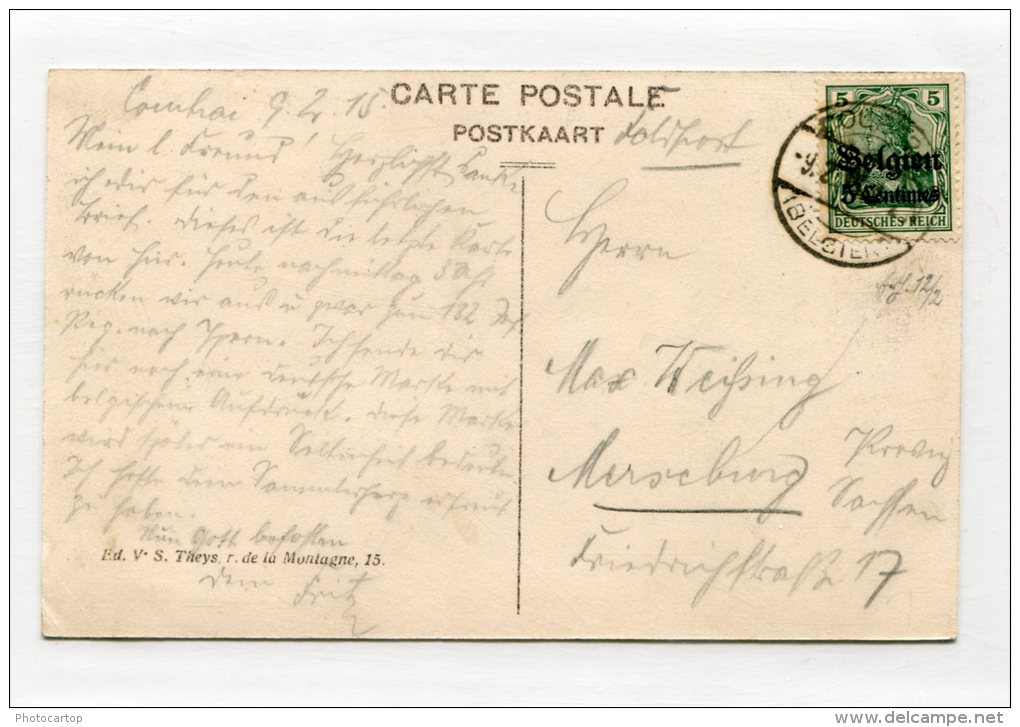 CARTE POSTALE
POSTKAART
Feldpost
9. 2. 15
Mein l. Freund! Herzlichsten Dank
ich dir für den ausführlichen
Brief. Dieses ist die letzte Karte
von hier. Heute nachmittag 3
rücken wir aus u zwar zum 132 Inf
Reg. nach Ypern. Ich sende dir
hier noch eine deutsche Marke mit
belgischem Aufdruck. Diese Marke
wird später ein Seltenheit bedeuten
Ich hoffe dein Sammlerherz erfreut
zu haben.
Nun Gott befohlen
Dein
Fritz
Ed. Vᵉ S. Theys, r. de la Montagne, 15.
Herrn
Max Weißing
Merseburg
Provinz
Sachsen
Friedrichstraße 17
12/2
5 5
Belgien
5 Centimes
DEUTSCHES REICH
(BELGIEN)
Photocartop
www.delcampe.net